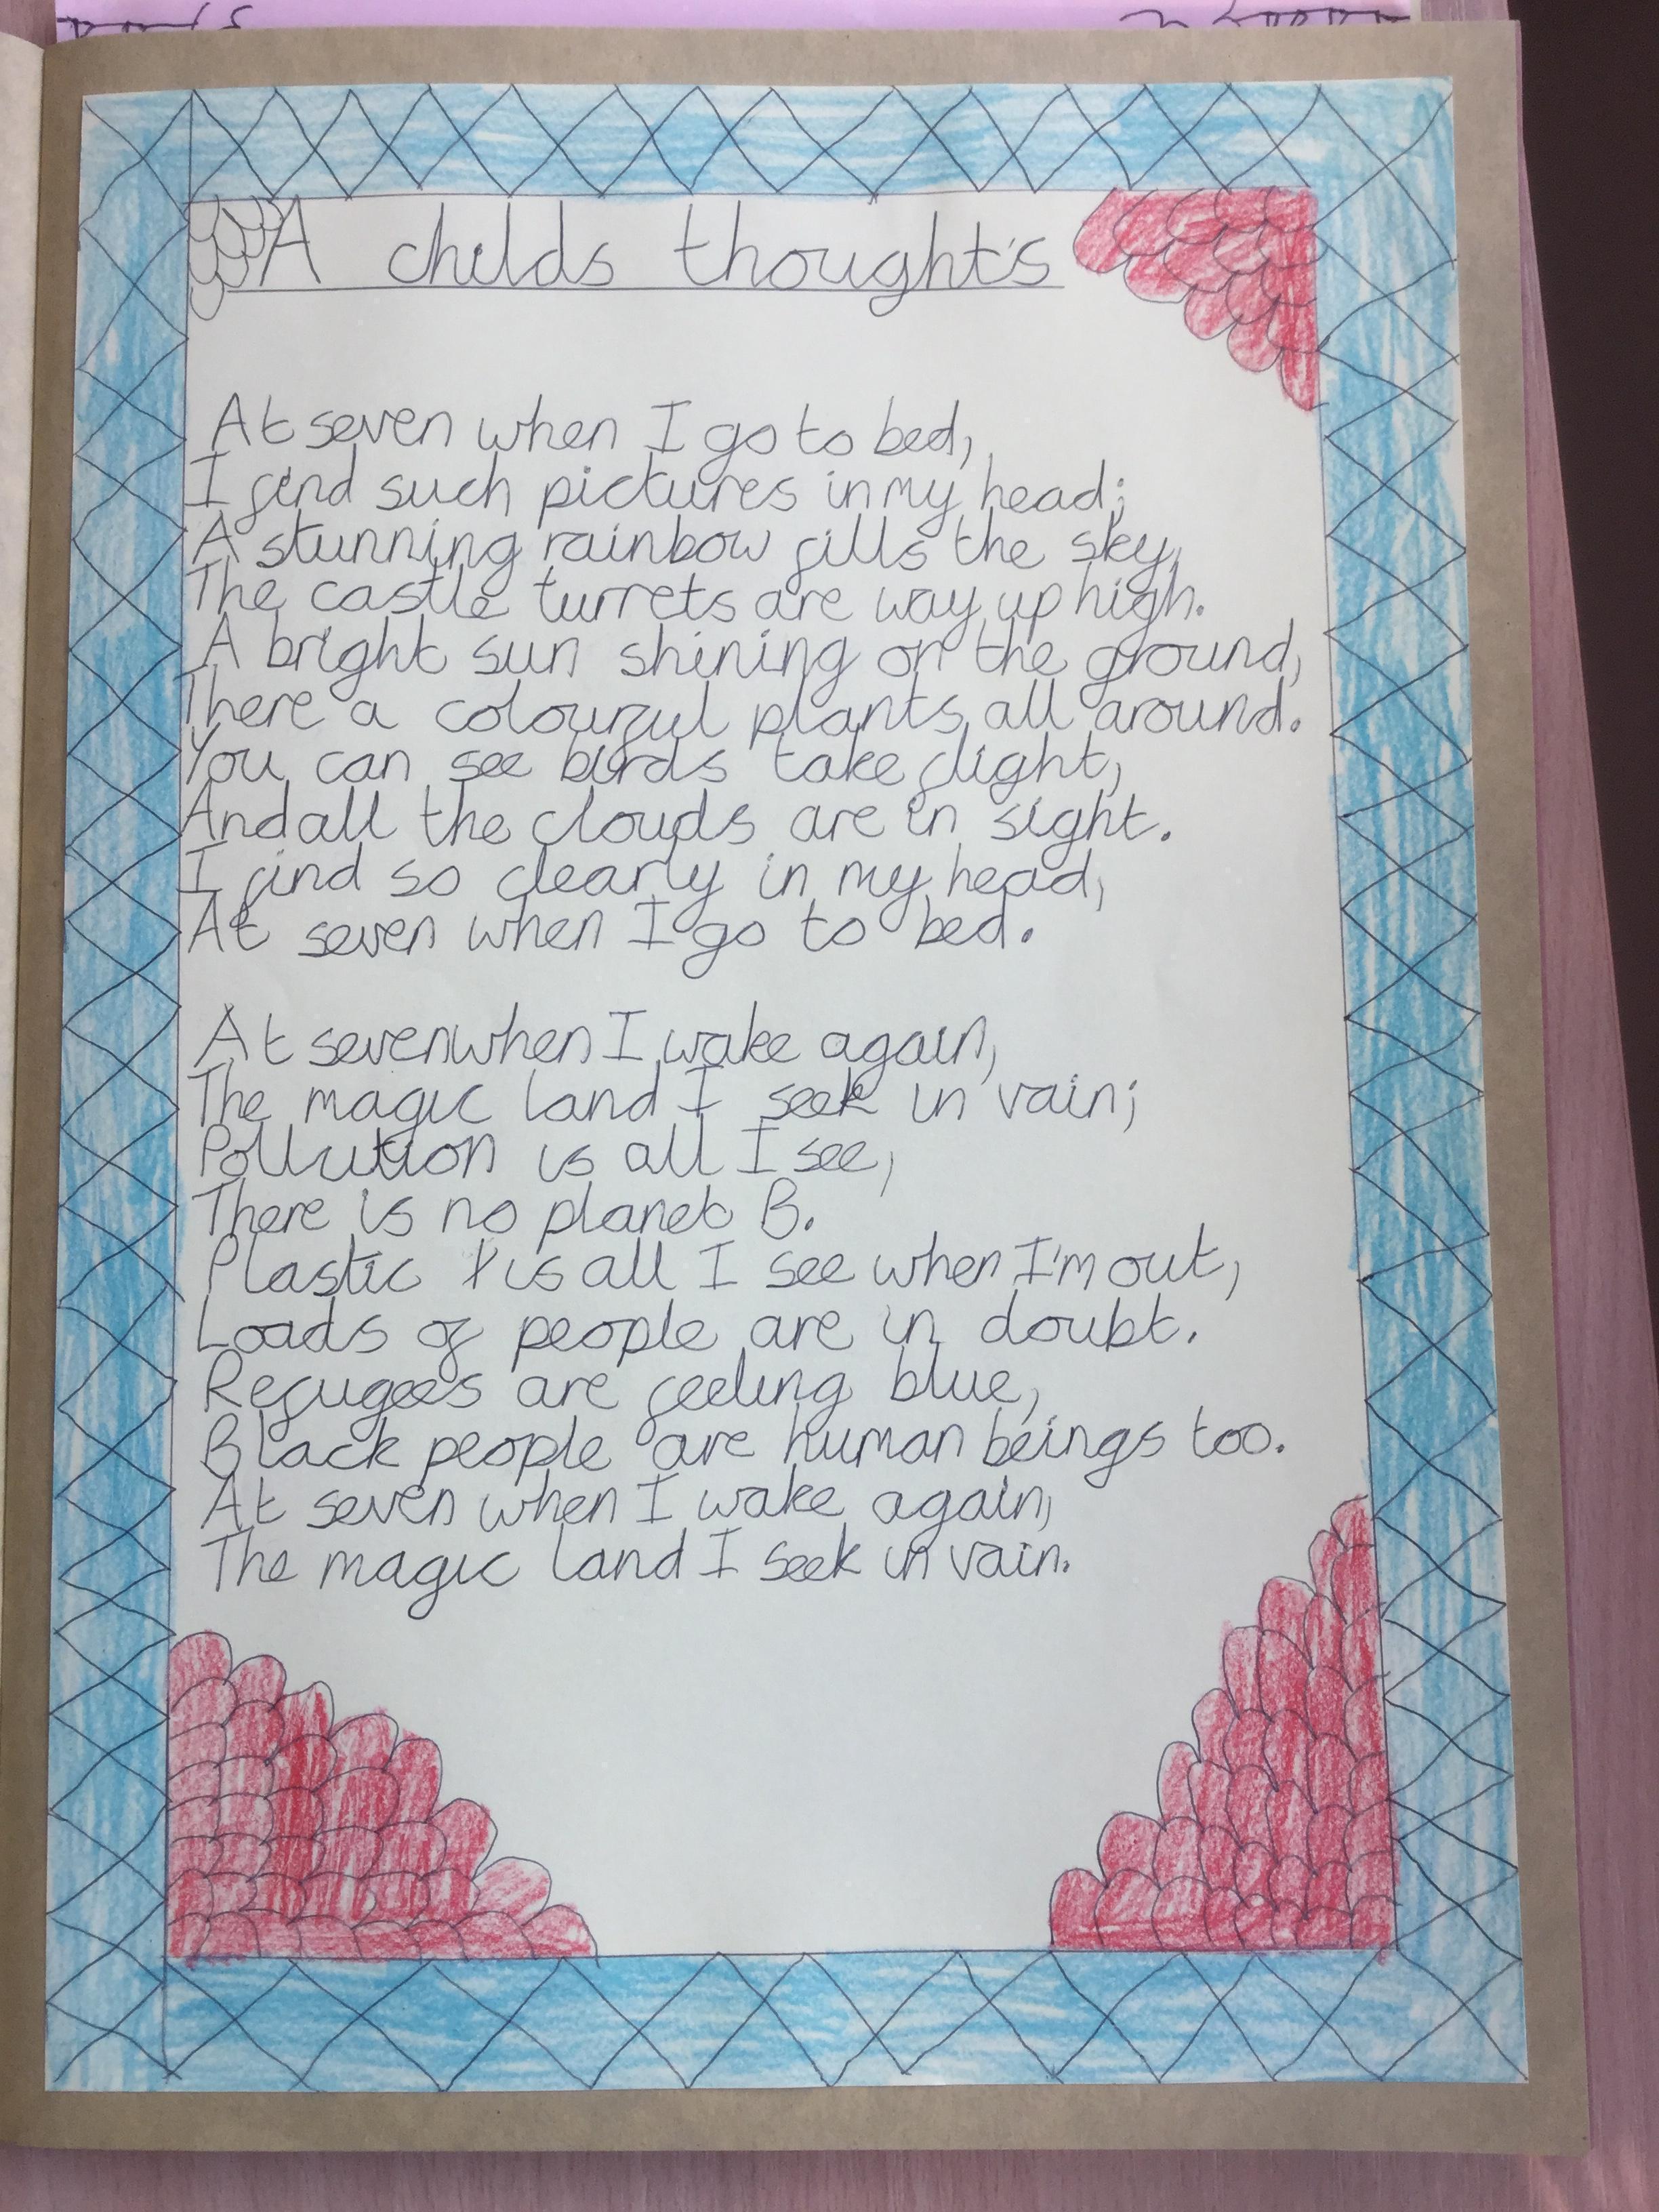 A childs thought's
At seven when I go to bed,
I find such pictures in my head;
A stunning rainbow fills the sky,
The castle turrets are way up high.
A bright sun shining on the ground,
There a colourful plants all around.
You can see birds take flight,
And all the clouds are in sight.
I find so clearly in my head,
At seven when I go to bed.
At seven when I wake again,
The magic land I seek in vain;
Pollution is all I see,
There is no planet B.
Plastic is all I see when I'm out,
Loads of people are in doubt.
Refugees are feeling blue,
Black people are human beings too.
At seven when I wake again,
The magic land I seek in vain.